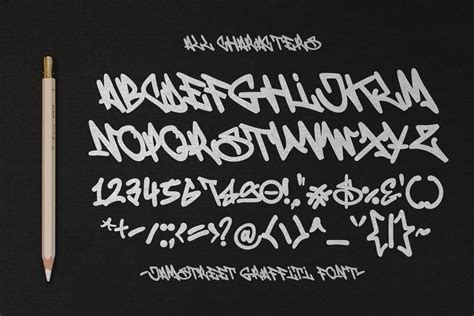 ALL CHARACTERS
ABCDEFGHIJKLM
NOPQRSTUVWXYZ
1234567890!"#$%&'()
*+-/:;<=>?@[\]^_`{|}~
-JAMSTREET GRAFFITI FONT-